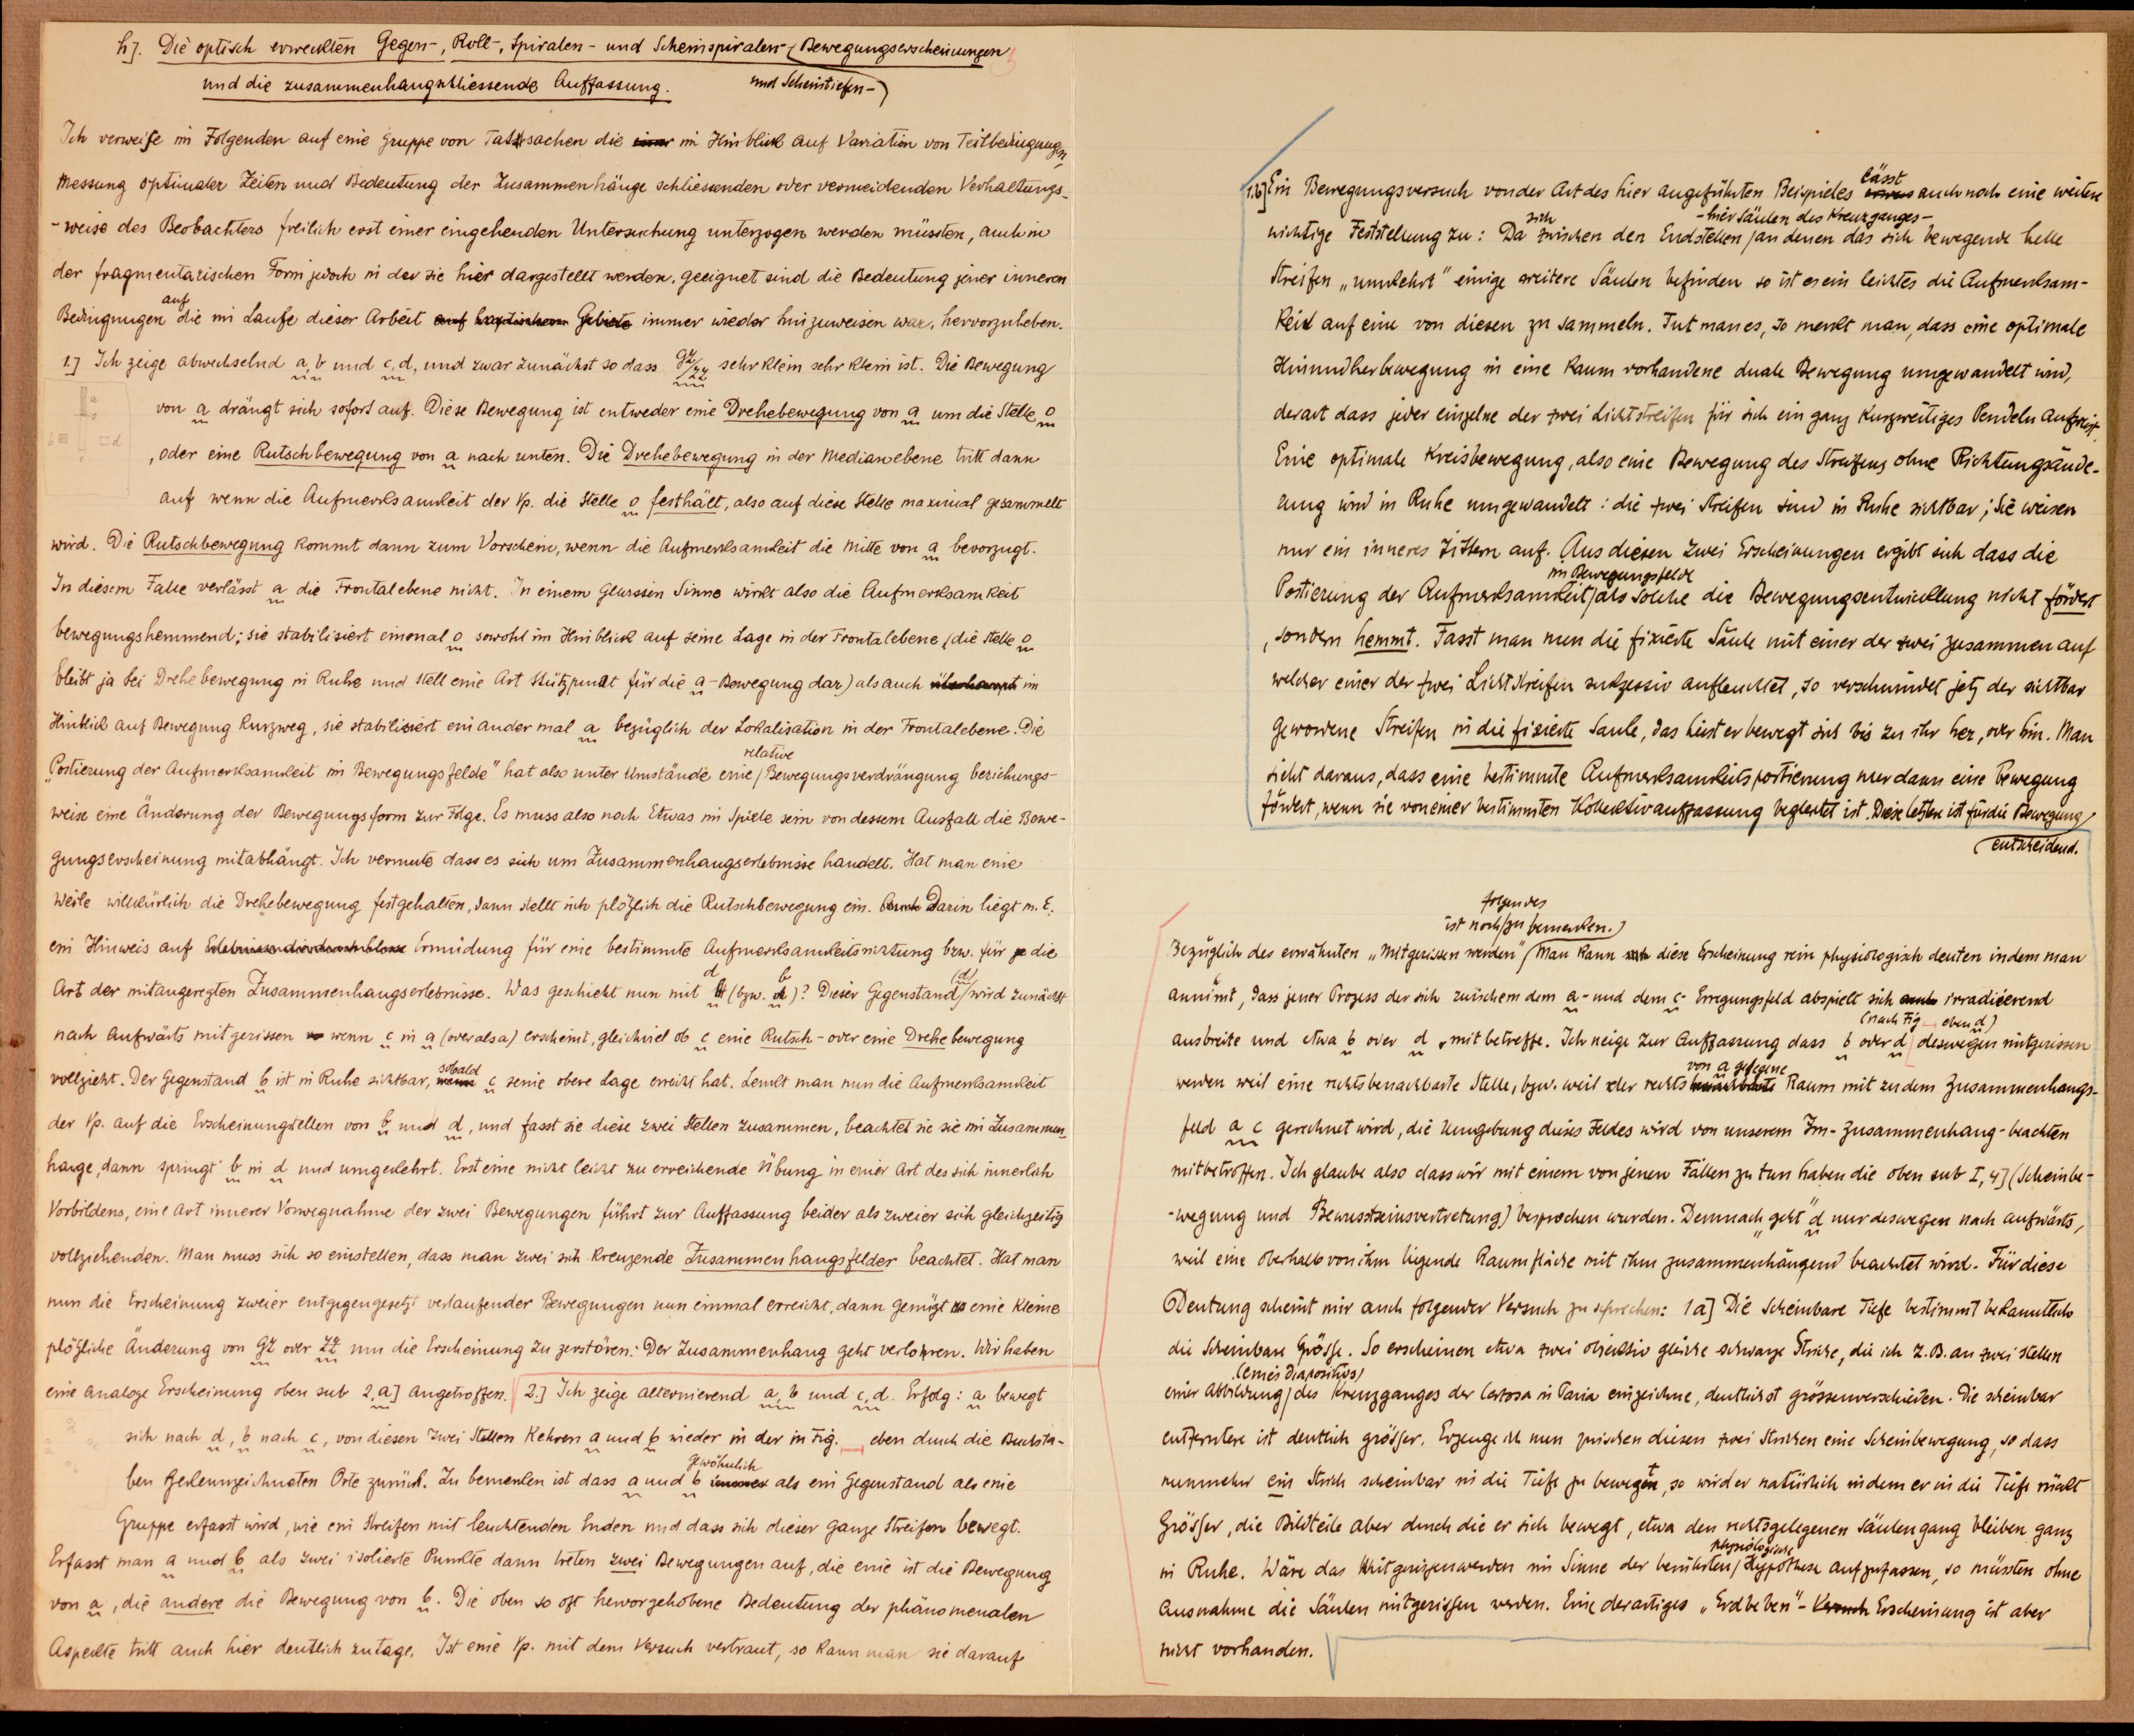 h]. Die optisch erweckten Gegen-, Roll-, Spiralen- und Scheinspiralen- Bewegungserscheinungen
und die zusammenhangschliessende Auffassung. und Scheintiefen-
Ich verweise im Folgenden auf eine Gruppe von Tatsachen die einer im Hinblick auf Variation von Teilbedingungen,
Messung optimaler Zeiten und Bedeutung der Zusammenhänge schliessenden oder vermeidenden Verhaltungs-
-weise des Beobachters freilich erst einer eingehenden Untersuchung unterzogen werden müssten, auch in
der fragmentarischen Form jedoch in der sie hier dargestellt werden, geeignet sind die Bedeutung jener inneren
auf
Bedingungen die im Laufe dieser Arbeit auf haptischem Gebiete immer wieder hinzuweisen war, hervorzuheben.
1.] Ich zeige abwechselnd a, b und c, d, und zwar zunächst so dass gz/zz sehr klein sehr klein ist. Die Bewegung
von a drängt sich sofort auf. Diese Bewegung ist entweder eine Drehebewegung von a um die Stelle o
, oder eine Rutschbewegung von a nach unten. Die Drehebewegung in der Medianebene tritt dann
auf wenn die Aufmerksamkeit der Vp. die Stelle o festhält, also auf diese Stelle maximal gesammelt
wird. Die Rutschbewegung kommt dann zum Vorschein, wenn die Aufmerksamkeit die Mitte von a bevorzugt.
In diesem Falle verlässt a die Frontalebene nicht. In einem gewissen Sinne wirkt also die Aufmerksamkeit
bewegungshemmend; sie stabilisiert einmal o sowohl im Hinblick auf seine Lage in der Frontalebene (die Stelle o
bleibt ja bei Drehebewegung in Ruhe und stellt eine Art Stützpunkt für die a-Bewegung dar) als auch überhaupt im
Hinblick auf Bewegung kurzweg, sie stabilisiert ein ander mal a bezüglich der Lokalisation in der Frontalebene. Die
relative
„Postierung der Aufmerksamkeit im Bewegungsfelde" hat also unter Umstände eine Bewegungsverdrängung beziehungs-
weise eine Änderung der Bewegungsform zur Folge. Es muss also noch Etwas im Spiele sein von dessem Ausfall die Bewe-
gungserscheinung mitabhängt. Ich vermute dass es sich um Zusammenhangserlebnisse handelt. Hat man eine
Weile willkürlich die Drehebewegung festgehalten, dann stellt sich plötzlich die Rutschbewegung ein. Auch Darin liegt m. E.
ein Hinweis auf Ermüdung für eine bestimmte Aufmerksamkeitsrichtung bzw. für die
Art der mitangeregten Zusammenhangserlebnisse. Was geschieht nun mit d (bzw. b)? Dieser Gegenstand (d) wird zunächst
nach aufwärts mitgerissen wenn c in a (oder als a) erscheint, gleichviel ob c eine Rutsch- oder eine Drehebewegung
vollzieht. Der Gegenstand b ist in Ruhe sichtbar, wenn sobald c seine obere Lage erreicht hat. Lenkt man nun die Aufmerksamkeit
der Vp. auf die Erscheinungstellen von b und d, und fasst sie diese zwei Stellen zusammen, beachtet sie sie im Zusammen-
hange, dann springt b in d und umgekehrt. Erst eine nicht leicht zu erreichende Übung in einer Art des sich innerlich
Vorbildens, eine Art innerer Vorwegnahme der zwei Bewegungen führt zur Auffassung beider als zweier sich gleichzeitig
vollziehenden. Man muss sich so einstellen, dass man zwei sich kreuzende Zusammenhangsfelder beachtet. Hat man
nun die Erscheinung zweier entgegengesetzt verlaufender Bewegungen nun einmal erreicht, dann genügt eine kleine
plötzliche Änderung von gz oder zz um die Erscheinung zu zerstören: Der Zusammenhang geht verloren. Wir haben
eine analoge Erscheinung oben sub 2,a] angetroffen. 2.] Ich zeige alternierend a, b und c, d. Erfolg: a bewegt
sich nach d, b nach c, von diesen zwei Stellen kehren a und b wieder in der in Fig. eben durch die Buchsta-
ben gekennzeichneten Orte zurück. Zu bemerken ist dass a und b immer gewöhnlich als ein Gegenstand als eine
Gruppe erfasst wird, wie ein Streifen mit leuchtenden Enden und dass sich dieser ganze Streifen bewegt.
Erfasst man a und b als zwei isolierte Punkte dann treten zwei Bewegungen auf, die eine ist die Bewegung
von a, die andere die Bewegung von b. Die oben so oft hervorgehobene Bedeutung der phänomenalen
Aspekte tritt auch hier deutlich zutage. Ist eine Vp. mit dem Versuch vertraut, so kann man sie darauf
1.b] Ein Bewegungsversuch von der Art des hier angeführten Beispieles lässt auch noch eine weitere
wichtige Feststellung zu: Da sich zwischen den Endstellen -hier Säulen des Kreuzganges- an denen das sich bewegende helle
Streifen „umkehrt" einige weitere Säulen befinden so ist es ein leichtes die Aufmerksam-
keit auf eine von diesen zu sammeln. Tut man es, so merkt man, dass eine optimale
Hinundherbewegung in eine kaum vorhandene duale Bewegung umgewandelt wird,
derart dass jeder einzelne der zwei Lichtstreifen für sich ein ganz kurzweitiges Pendeln aufweist.
Eine optimale Kreisbewegung, also eine Bewegung des Streifens ohne Richtungsände-
rung wird in Ruhe umgewandelt: die zwei Streifen sind in Ruhe sichtbar; sie weisen
nur ein inneres Zittern auf. Aus diesen zwei Erscheinungen ergibt sich dass die
im Bewegungsfelde
Postierung der Aufmerksamkeit als solche die Bewegungsentwicklung nicht fördert
, sondern hemmt. Fasst man nun die fixierte Säule mit einer der zwei zusammen auf
welcher einer der zwei Lichtstreifen sukzessiv aufleuchtet, so verschwindet jetz der sichtbar
gewordene Streifen in die fixierte Säule, das heist er bewegt sich bis zu ihr her, oder hin. Man
sieht daraus, dass eine bestimmte Aufmerksamkeitspostierung nur dann eine Bewegung
fördert, wenn sie von einer bestimmten Kollektivauffassung begleitet ist. Diese letztere ist für die Bewegung
entscheidend.
folgendes
ist noch zu bemerken.
Bezüglich des erwähnten „Mitgerissen werden" Man kann diese Erscheinung rein physiologisch deuten indem man
annimt, dass jener Prozess der sich zwischem dem a- und dem c- Erregungsfeld abspielt sich auch irradiierend
ausbreite und etwa b oder d „mitbetreffe. Ich neige zur Auffassung dass b oder d (nach Fig. eben d) deswegen mitgerissen
werden weil eine rechtsbenachbarte Stelle, bzw. weil der rechts von a gelegene Raum mit zu dem Zusammenhangs-
feld a c gerechnet wird, die Umgebung dieses Feldes wird von unserem Im-Zusammenhang-beachten
mitbetroffen. Ich glaube also dass wir mit einem von jenen Fällen zu tun haben die oben sub I, 4] (Scheinbe-
-wegung und Bewusstseinsvertretung) besprochen wurden. Demnach „geht" d nur deswegen nach aufwärts,
weil eine oberhalb von ihm liegende Raumfläche mit ihm zusammenhängend beachtet wird. Für diese
Deutung scheint mir auch folgender Versuch zu sprechen: 1a] Die Scheinbare Tiefe bestimmt bekanntlich
die Scheinbare Grösse. So erscheinen etwa zwei objektiv gleiche schwarze Striche, die ich z.B. an zwei stellen
einer Abbildung (eines Diapositivs) des Kreuzganges der Certosa in Pavia einzeichne, deutlichst grössenverschieden. Die scheinbar
entferntere ist deutlich grösser. Erzeuge ich nun zwischen diesen zwei Strichen eine Scheinbewegung, so dass
nunmehr ein Strich scheinbar in die Tiefe zu bewegt, so wird er natürlich indem er in die Tiefe rückt
Grösser, die Bildteile aber durch die er sich bewegt, etwa den rechtsgelegenen Säulengang bleiben ganz
physiologische
in Ruhe. Wäre das Mitgerissenwerden im Sinne der berührten Hypothese aufzufassen, so müssten ohne
Ausnahme die Säulen mitgerissen werden. Eine derartiges „Erdbeben"- Versuch Erscheinung ist aber
nicht vorhanden.